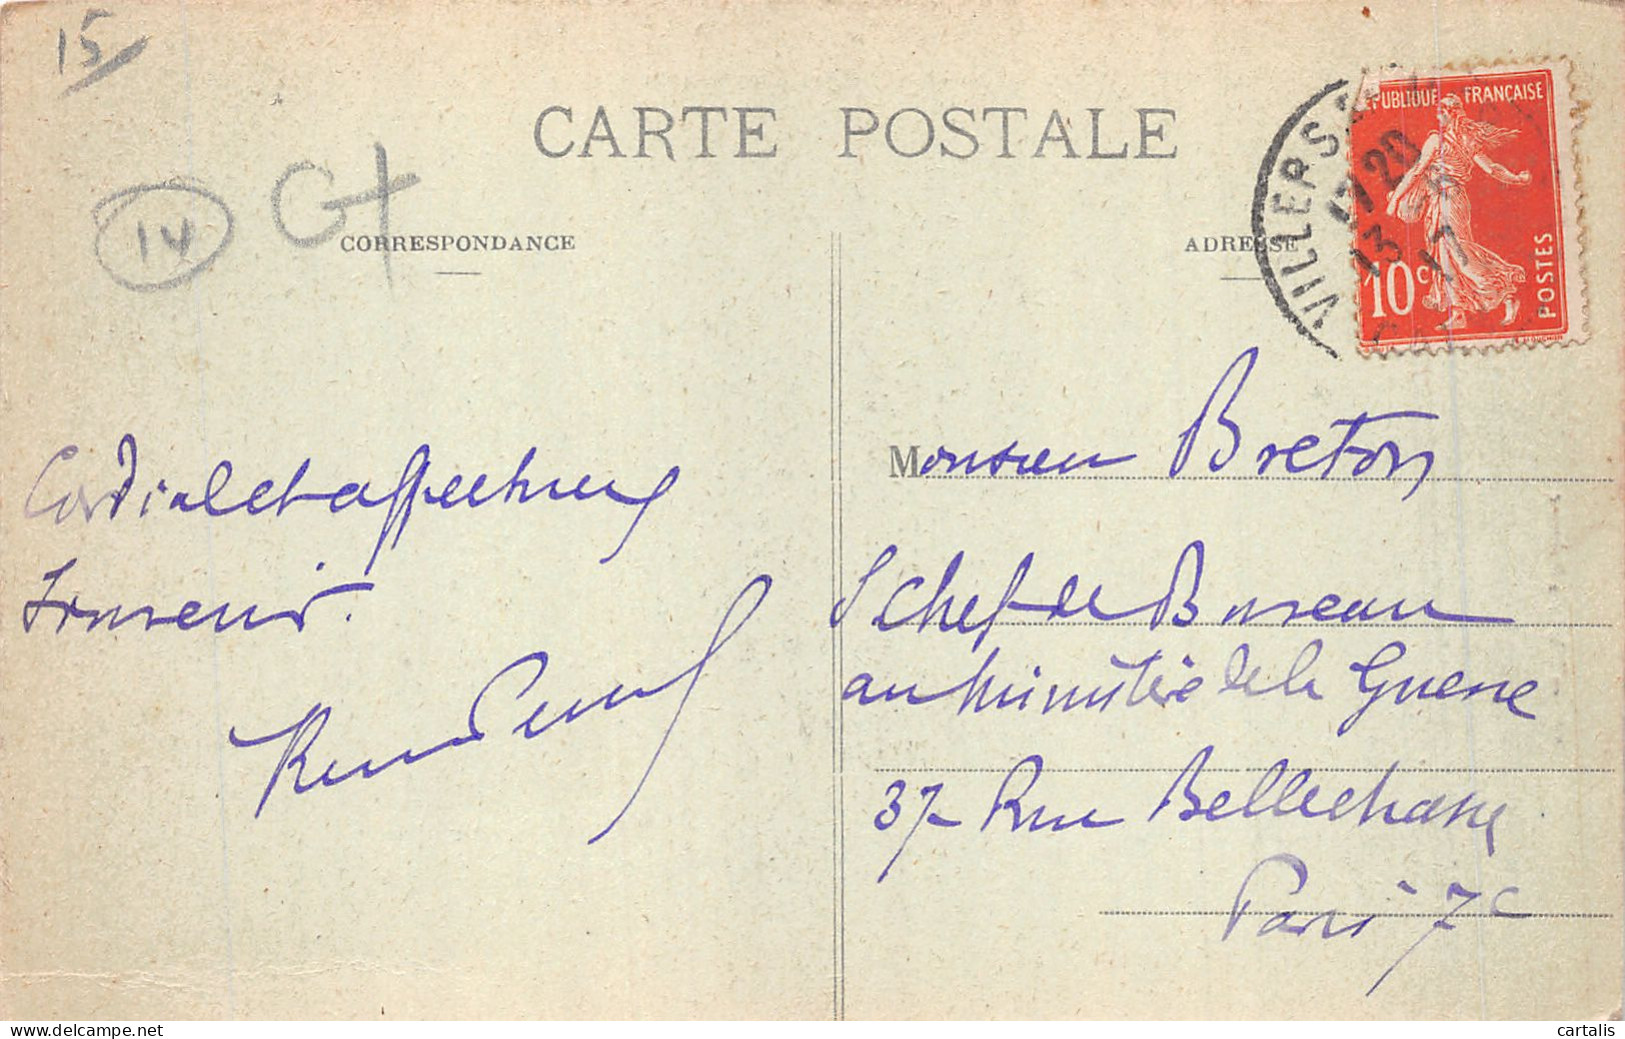 15
CARTE POSTALE
14
CORRESPONDANCE
ADRESSE
RÉPUBLIQUE FRANÇAISE
10c
POSTES
VILLERS
17 20
13
17
Cordial et affectueux
Souvenir.
Monsieur Breton
S Chef de Bureau
au Ministère de la Guerre
37 Rue Bellechasse
Paris 7e
cartalis